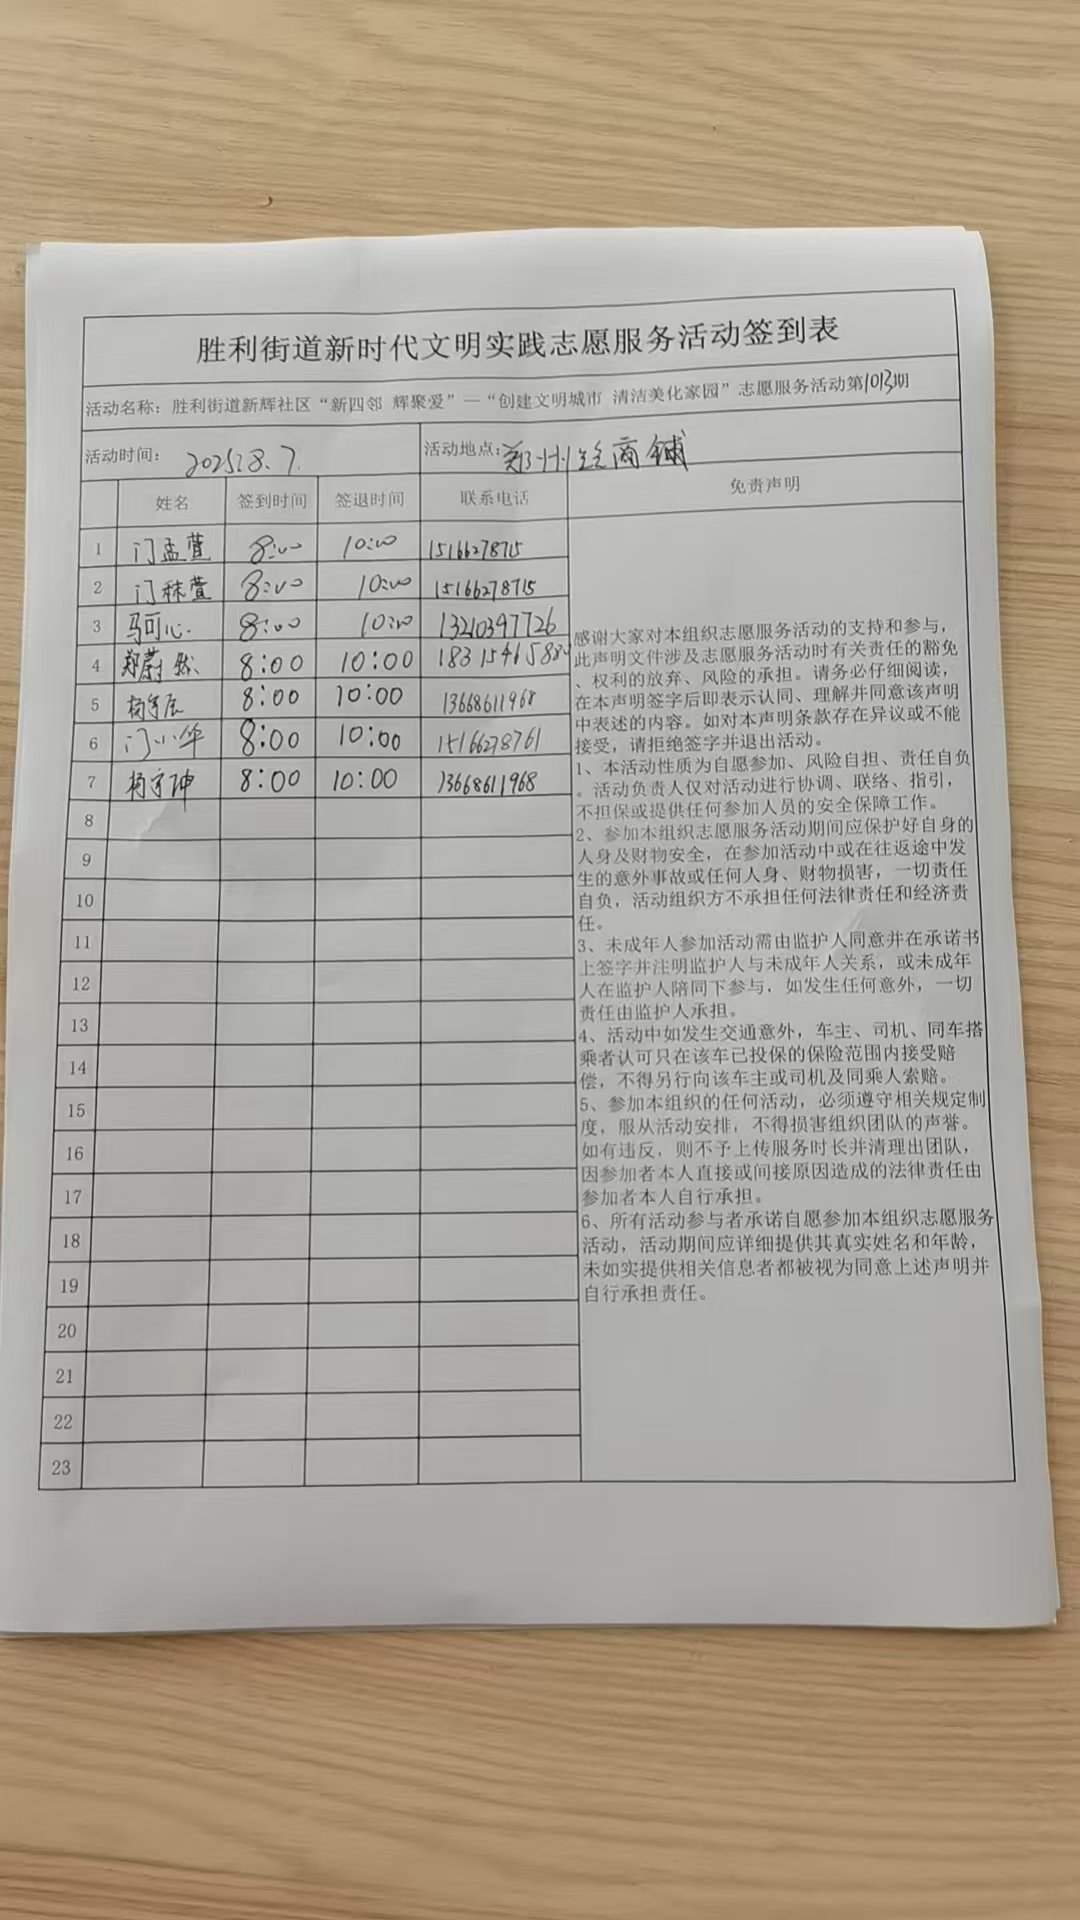 胜利街道新时代文明实践志愿服务活动签到表
活动名称：胜利街道新辉社区“新四邻 辉聚爱”—“创建文明城市 清洁美化家园”志愿服务活动第1013期
活动时间： 2025.8.7. 活动地点：郑州路商铺
姓名 签到时间 签退时间 联系电话 免责声明
1 门孟萱 8:00 10:00 15166278715
2 门秣萱 8:00 10:00 15166278715
3 马可心. 8:00 10:00 13210397726
4 郑蔚然 8:00 10:00 1831546588
5 杨宇辰 8:00 10:00 13668611968
6 门小华 8:00 10:00 15166278761
7 杨宇坤 8:00 10:00 13668611968
8
9
10
11
12
13
14
15
16
17
18
19
20
21
22
23
感谢大家对本组织志愿服务活动的支持和参与，
此声明文件涉及志愿服务活动时有关责任的豁免
、权利的放弃、风险的承担。请务必仔细阅读，
在本声明签字后即表示认同、理解并同意该声明
中表述的内容。如对本声明条款存在异议或不能
接受，请拒绝签字并退出活动。
1、本活动性质为自愿参加、风险自担、责任自负
。活动负责人仅对活动进行协调、联络、指引，
不担保或提供任何参加人员的安全保障工作。
2、参加本组织志愿服务活动期间应保护好自身的
人身及财物安全，在参加活动中或在往返途中发
生的意外事故或任何人身、财物损害，一切责任
自负，活动组织方不承担任何法律责任和经济责
任。
3、未成年人参加活动需由监护人同意并在承诺书
上签字并注明监护人与未成年人关系，或未成年
人在监护人陪同下参与，如发生任何意外，一切
责任由监护人承担。
4、活动中如发生交通意外，车主、司机、同车搭
乘者认可只在该车已投保的保险范围内接受赔
偿，不得另行向该车主或司机及同乘人索赔。
5、参加本组织的任何活动，必须遵守相关规定制
度，服从活动安排，不得损害组织团队的声誉。
如有违反，则不予上传服务时长并清理出团队，
因参加者本人直接或间接原因造成的法律责任由
参加者本人自行承担。
6、所有活动参与者承诺自愿参加本组织志愿服务
活动，活动期间应详细提供其真实姓名和年龄，
未如实提供相关信息者都被视为同意上述声明并
自行承担责任。